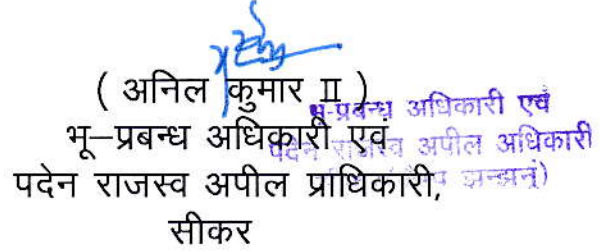 ( अनिल कुमार II )
भू–प्रबन्ध अधिकारी एवं
पदेन राजस्व अपील प्राधिकारी,
सीकर
भू-प्रबन्ध अधिकारी एवं
पदेन राजस्व अपील अधिकारी
झुन्झुनूं)